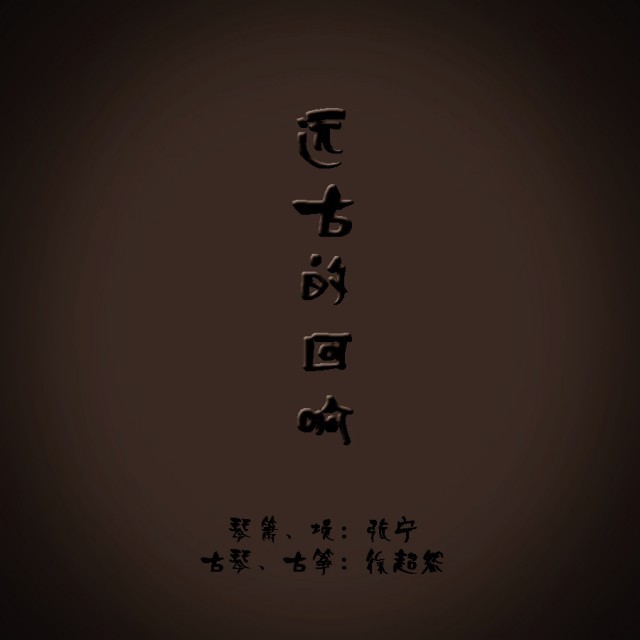 远古的回响
琴箫、埙：张宁
古琴、古筝：徐超然